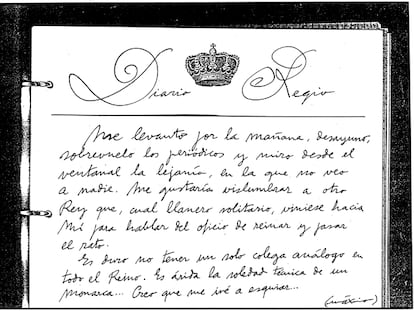 Diario Regio
Me levanto por la mañana, desayuno,
sobrevuelo los periódicos y miro desde el
ventanal la lejanía, en la que no veo
a nadie. Me gustaría vislumbrar a otro
Rey que, cual llanero solitario, viniese hacia
Mí para hablar del oficio de reinar y pasar
el rato.
Es duro no tener un solo colega análogo en
todo el Reino. Es árida la soledad técnica de un
monarca... Creo que me iré a esquiar...
(máximo)